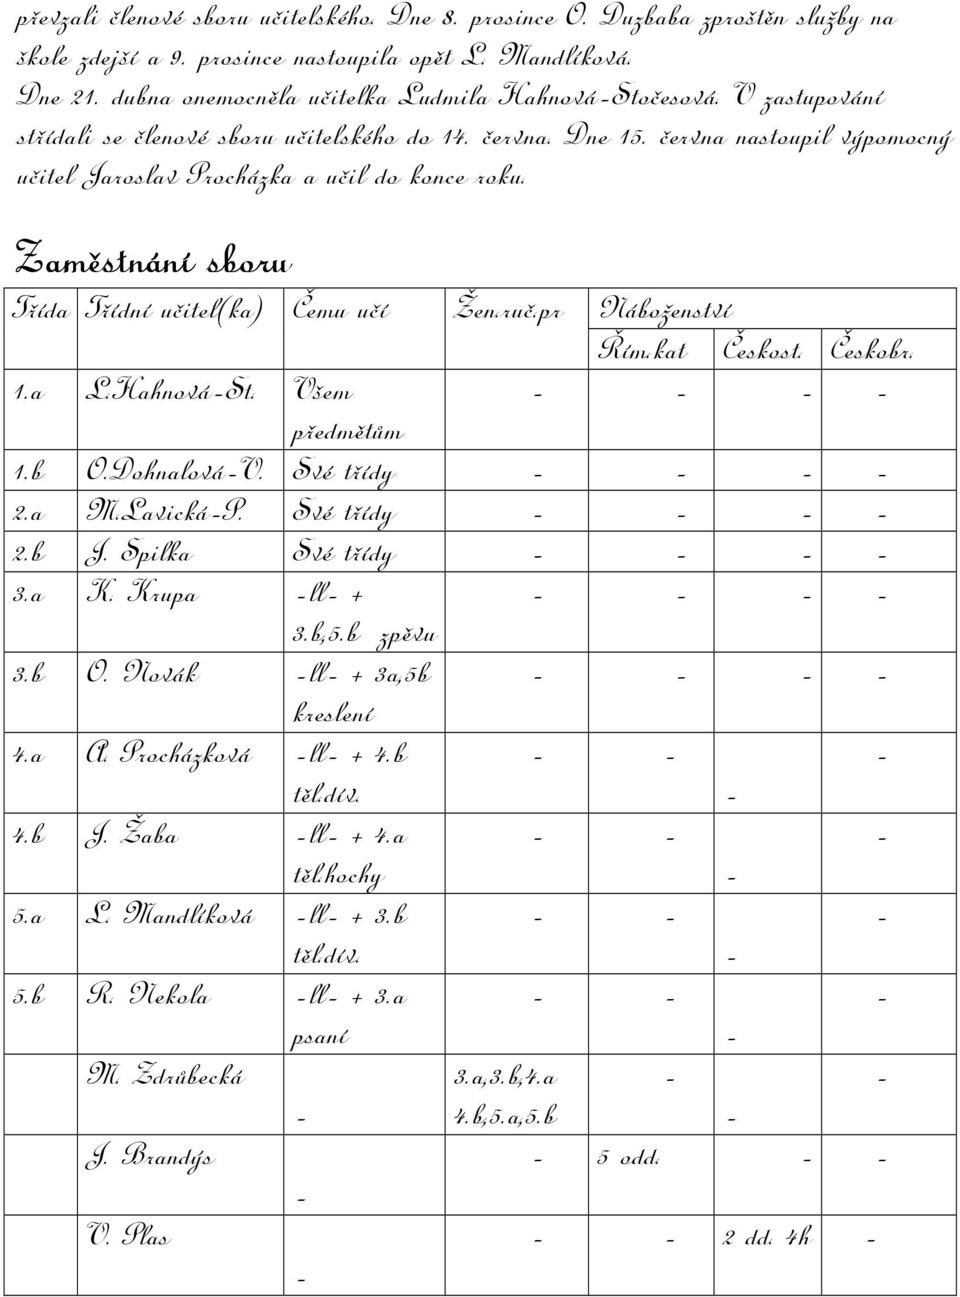 převzali členové sboru učitelského. Dne 8. prosince O. Duzbaba zproštěn služby na
škole zdejší a 9. prosince nastoupila opět L. Mandlíková.
Dne 21. dubna onemocněla učitelka Ludmila Hahnová-Stočesová. V zastupování
střídali se členové sboru učitelského do 14. června. Dne 15. června nastoupil výpomocný
učitel Jaroslav Procházka a učil do konce roku.
Zaměstnání sboru
Třída Třídní učitel(ka) Čemu učí Žen.ruč.pr Náboženství
Řím.kat Českost. Českobr.
1.a L.Hahnová-St. Všem - - - -
předmětům
1.b O.Dohnalová-V. Své třídy - - - -
2.a M.Lavická-P. Své třídy - - - -
2.b J. Spilka Své třídy - - - -
3.a K. Krupa -ll- + - - - -
3.b,5.b zpěvu
3.b O. Novák -ll- + 3a,5b - - - -
kreslení
4.a A. Procházková -ll- + 4.b - - -
těl.dív. -
4.b J. Žaba -ll- + 4.a - - -
těl.hochy -
5.a L. Mandlíková -ll- + 3.b - - -
těl.dív. -
5.b R. Nekola -ll- + 3.a - - -
psaní -
M. Zdrůbecká 3.a,3.b,4.a - -
- 4.b,5.a,5.b -
J. Brandýs - 5 odd. - -
-
V. Plas - - 2 dd. 4h -
-